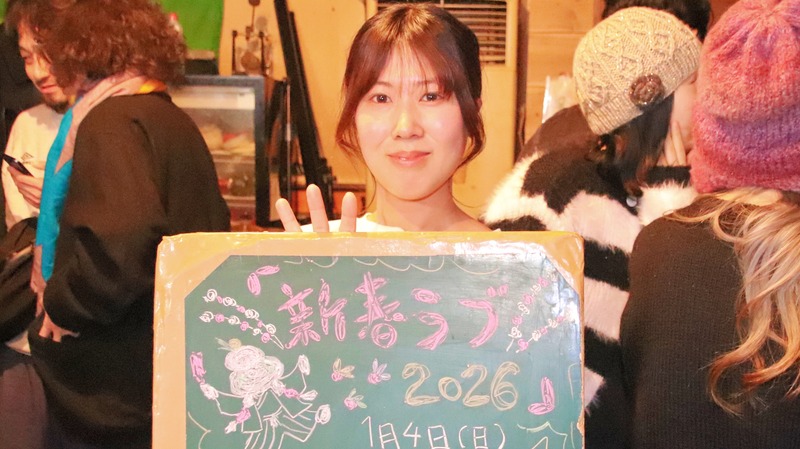 「新春ラブ
2026」
1月4日(日)